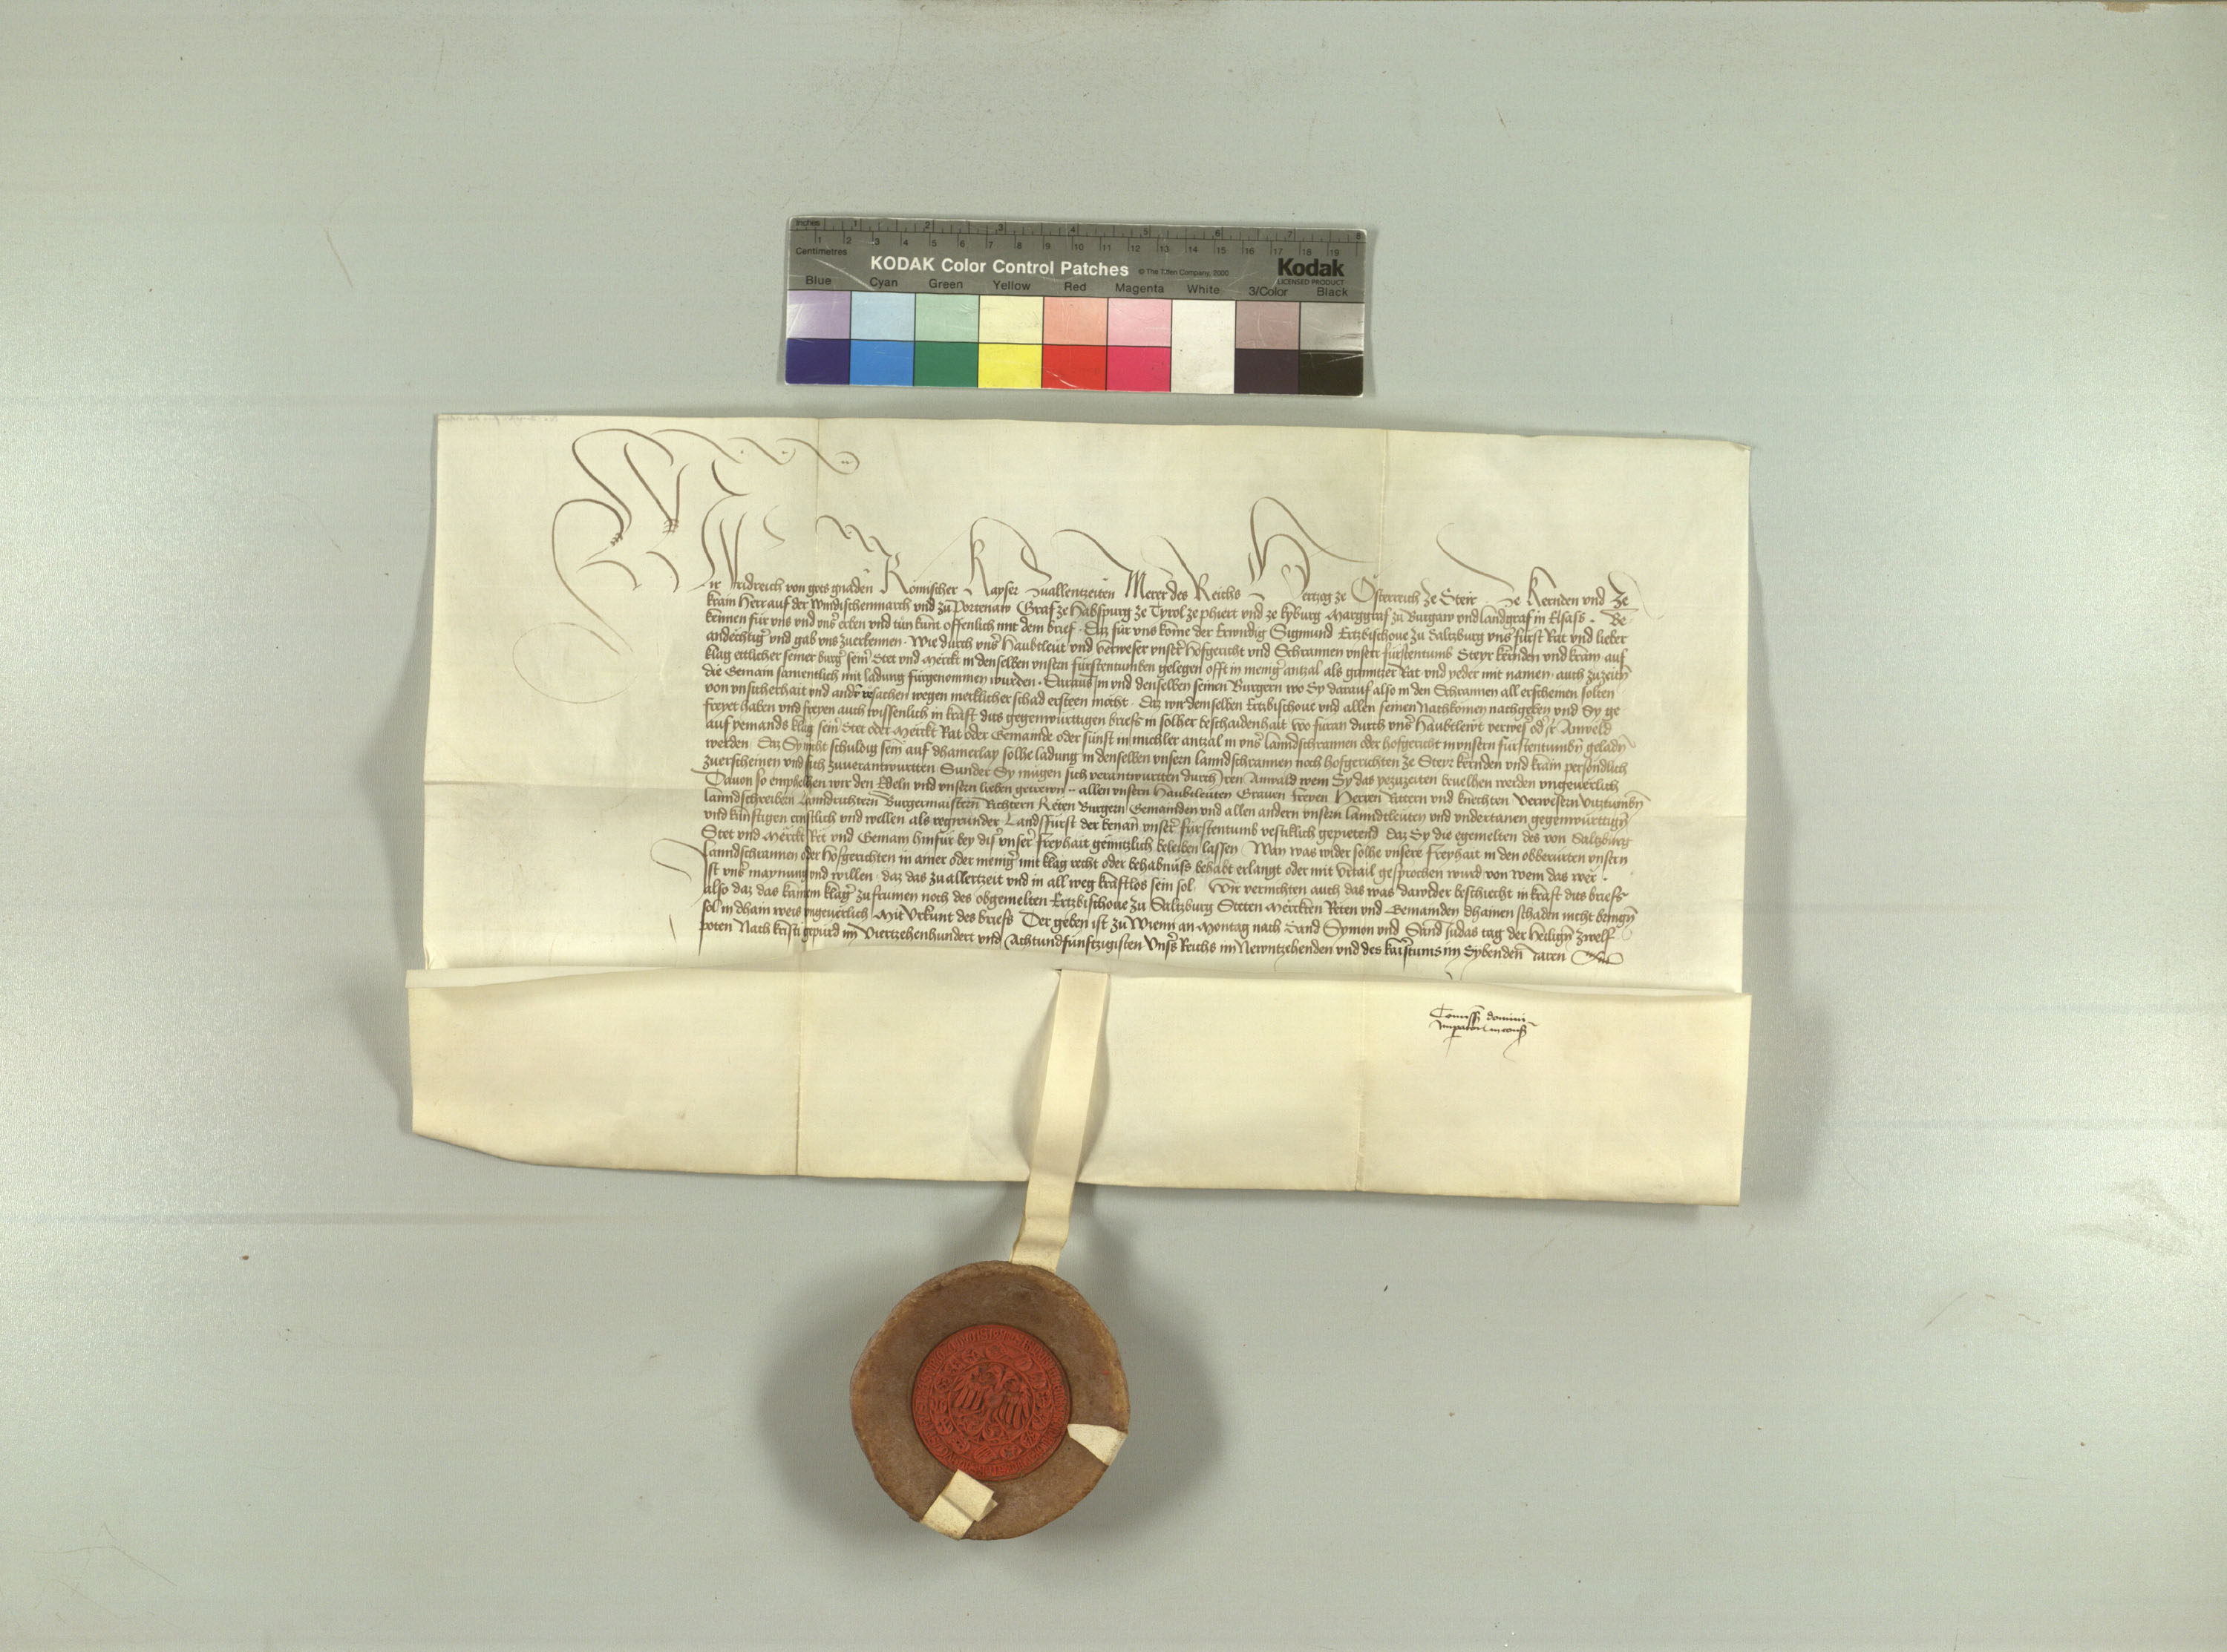 Inches 1 2 3 4 5 6 7 8
Centimetres 1 2 3 4 5 6 7 8 9 10 11 12 13 14 15 16 17 18 19
KODAK Color Control Patches © The Tiffen Company, 2000 Kodak
LICENSED PRODUCT
Blue Cyan Green Yellow Red Magenta White 3/Color Black
Wir Fridreich von gots gnaden Römischer Kayser Zuallenntzeiten Merer des Reichs Hertzog ze Österreich ze Steir ze Kernden und ze
krain Herr auf der Windischenmarch und zu Portenaw Graf ze Habspurg ze Tyrol ze phiert und ze kyburg Marggraf zu Burgaw und landgraf in Elsass · Be
kennen für uns und unsr erben und tun kunt offenlich mit dem brief · Daz für uns kome der Erwirdig Sigmund Ertzbischove zu Saltzburg unsr fürst Rat und lieber
andechtigr und gab uns zuerkennen · Wie durch unsr haubtleut und verweser unsrr hofgericht und Schrannen unsrr fürstentumb Steyr kernden und krain auf
klag ettlicher seiner burgr seinr Stet und Merckt in denselben unsern fürstentumben gelegen offt in menigr antzal als genntzer Rat und yeder mit namen · auch zuzeitn
die Gemain samentlich mit ladung fürgenomen wurden · Daraus Im und denselben seinen Burgern wo Sy darauf also in den Schrannen all erscheinen solten
von unsicherhait und andrr ursachen wegen mercklicher schad ersteen möcht · Daz wir demselben Ertzbischove und allen seinen Nachkomen nachgeben und Sy ge
freyet haben und freyen auch wissenlich in krafft dits gegenwürttigen briefs in solher beschaidenhait wo füran durch unsr haubtlewt verwesr odr Ir Anweld
auf yemands klag seinr Stet oder Merckt Rat oder Gemainde oder sunst in michler antzal in unsr lanndschrannen oder hofgericht in unsern fürstentumbn geladn
werden · Daz Sy nicht schuldig sein auf dhainerlay solhe ladung in denselben unsern lanndschrannen noch hofgerichten ze Steyr kernden und krain persöndlich
zuerscheinen und sich zuverantwurtten Sunder Sy mügen sich verantwurtten durch Iren Anwald wem Sy das yezuzeiten bevelhen werden ungeverlich
Davon so emphelhen wir den Edeln und unsern lieben getrewn .. allen unsern Haubtleuten Graven Freyen Herren Rittern und knechten Verwesern Vitztumbn
lanndschreibern Lanndrichtern Burgermaistern Richtern Reten Burgern Gemainden und allen andern unsern lanndtleuten und undertanen gegenwurttign
und künftigen ernstlich und wellen als regirunder Landsfürst der benanten unsrr fürstentumb vesticlich gepietend daz Sy die egemelten des von Saltzburg
Stet und Merckt Ret und Gemain hinfür bey disr unsrr freyhait genntzlich beleiben lassen Wan was wider solhe unsere freyhait in den obberürten unsern
lanndschrannen oder Hofgerichten in ainer oder menigr mit klag recht oder behabnüss behabt erlangt oder mit Urtail gesprochen wurd von wem das wer ·
Ist unsr maynung und willen · daz das zu allertzeit und in all weg krafftlos sein sol · Wir vernichten auch das was dawider beschiecht in krafft dits briefs
also daz das kainem klagr zu frumen noch des obgemelten Ertzbischove zu Saltzburg Steten Merckten Reten und Gemainden dhainen schaden nicht bringn
sol in dhain weis ungeverlich Mit Urkunt des briefs Der geben ist zu Wienn an Montag nach Sand Symon und Sand Judas tag der Heilign Zwelf
poten Nach kristi gepurd im Viertzehenhundert und Achtundfünftzigisten Unsrs Reichs im Newntzehenden und des kaisrtumbs im Sybenden Jaren
Comissio domini
Imperatoris in consilio